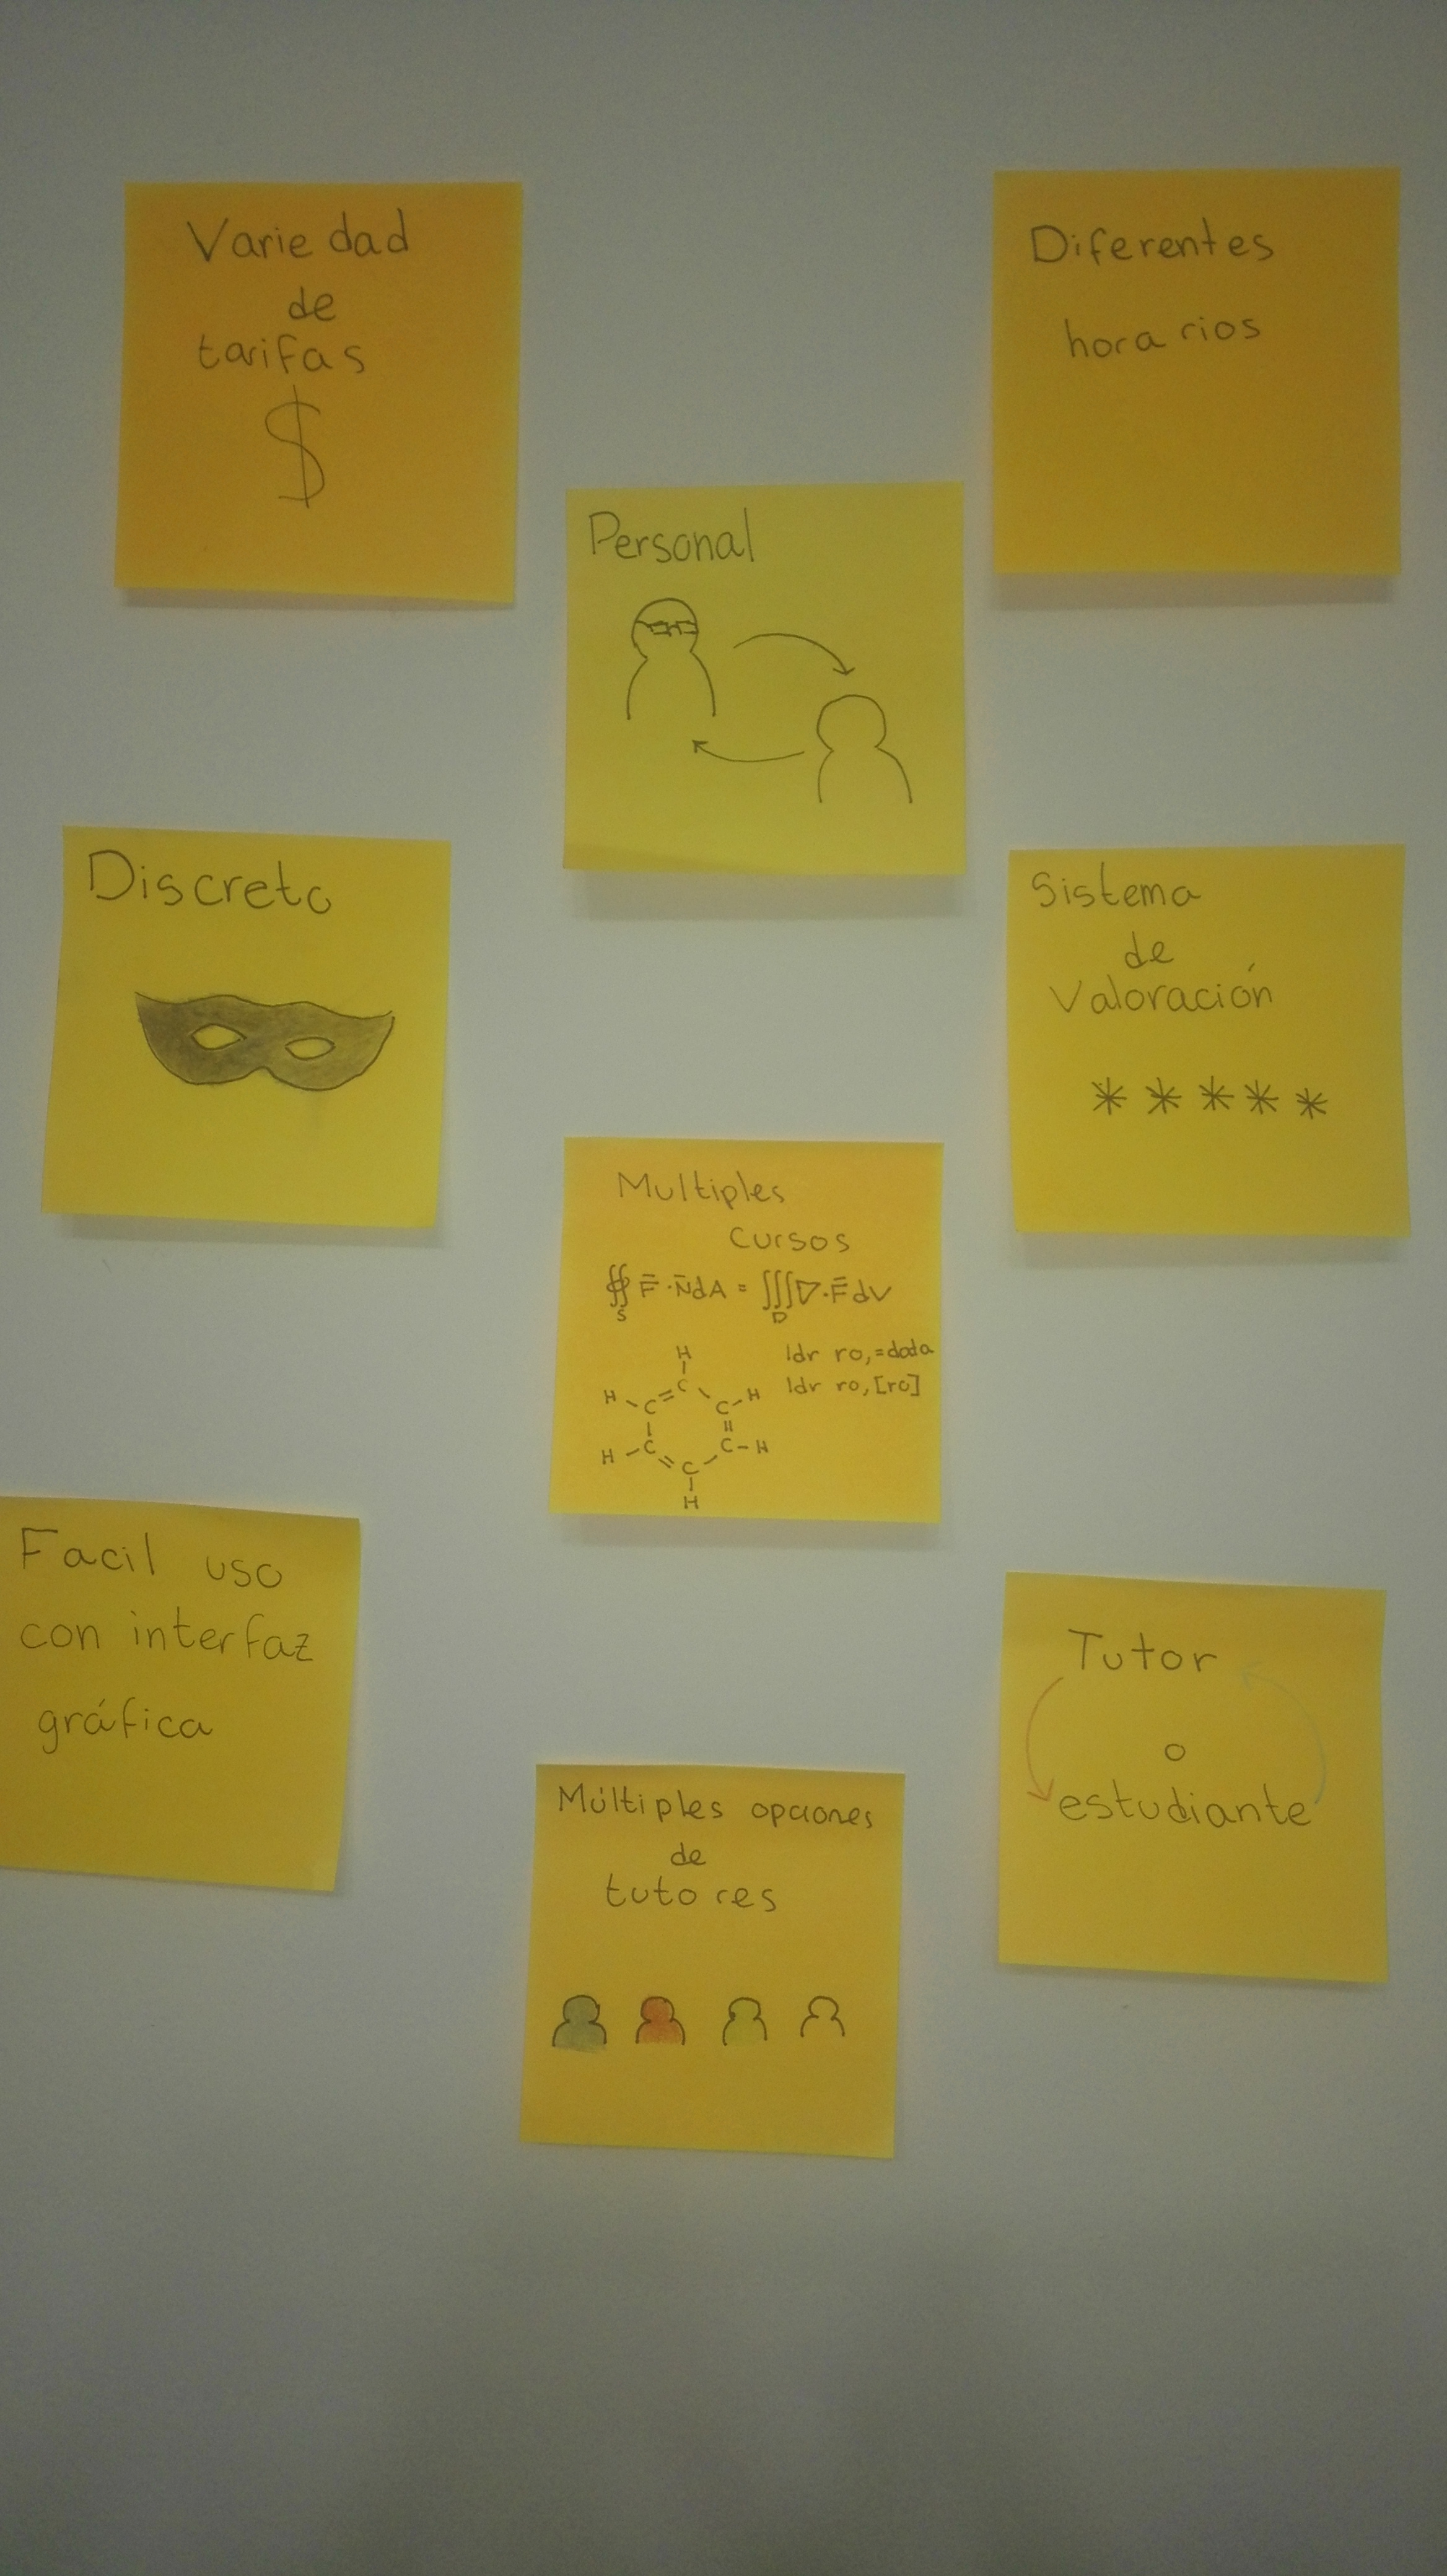 Variedad
de
tarifas
$
Diferentes
horarios
Personal
Discreto
Sistema
de
Valoración
* * * * *
Multiples
Cursos
∯ F̄·N̄dA = ∭∇·F̄dV
S D
ldr r0,=data
ldr r0,[r0]
H
H C H
C C
C C - H
H C
H
Facil uso
con interfaz
gráfica
Tutor
o
estudiante
Múltiples opciones
de
tutores